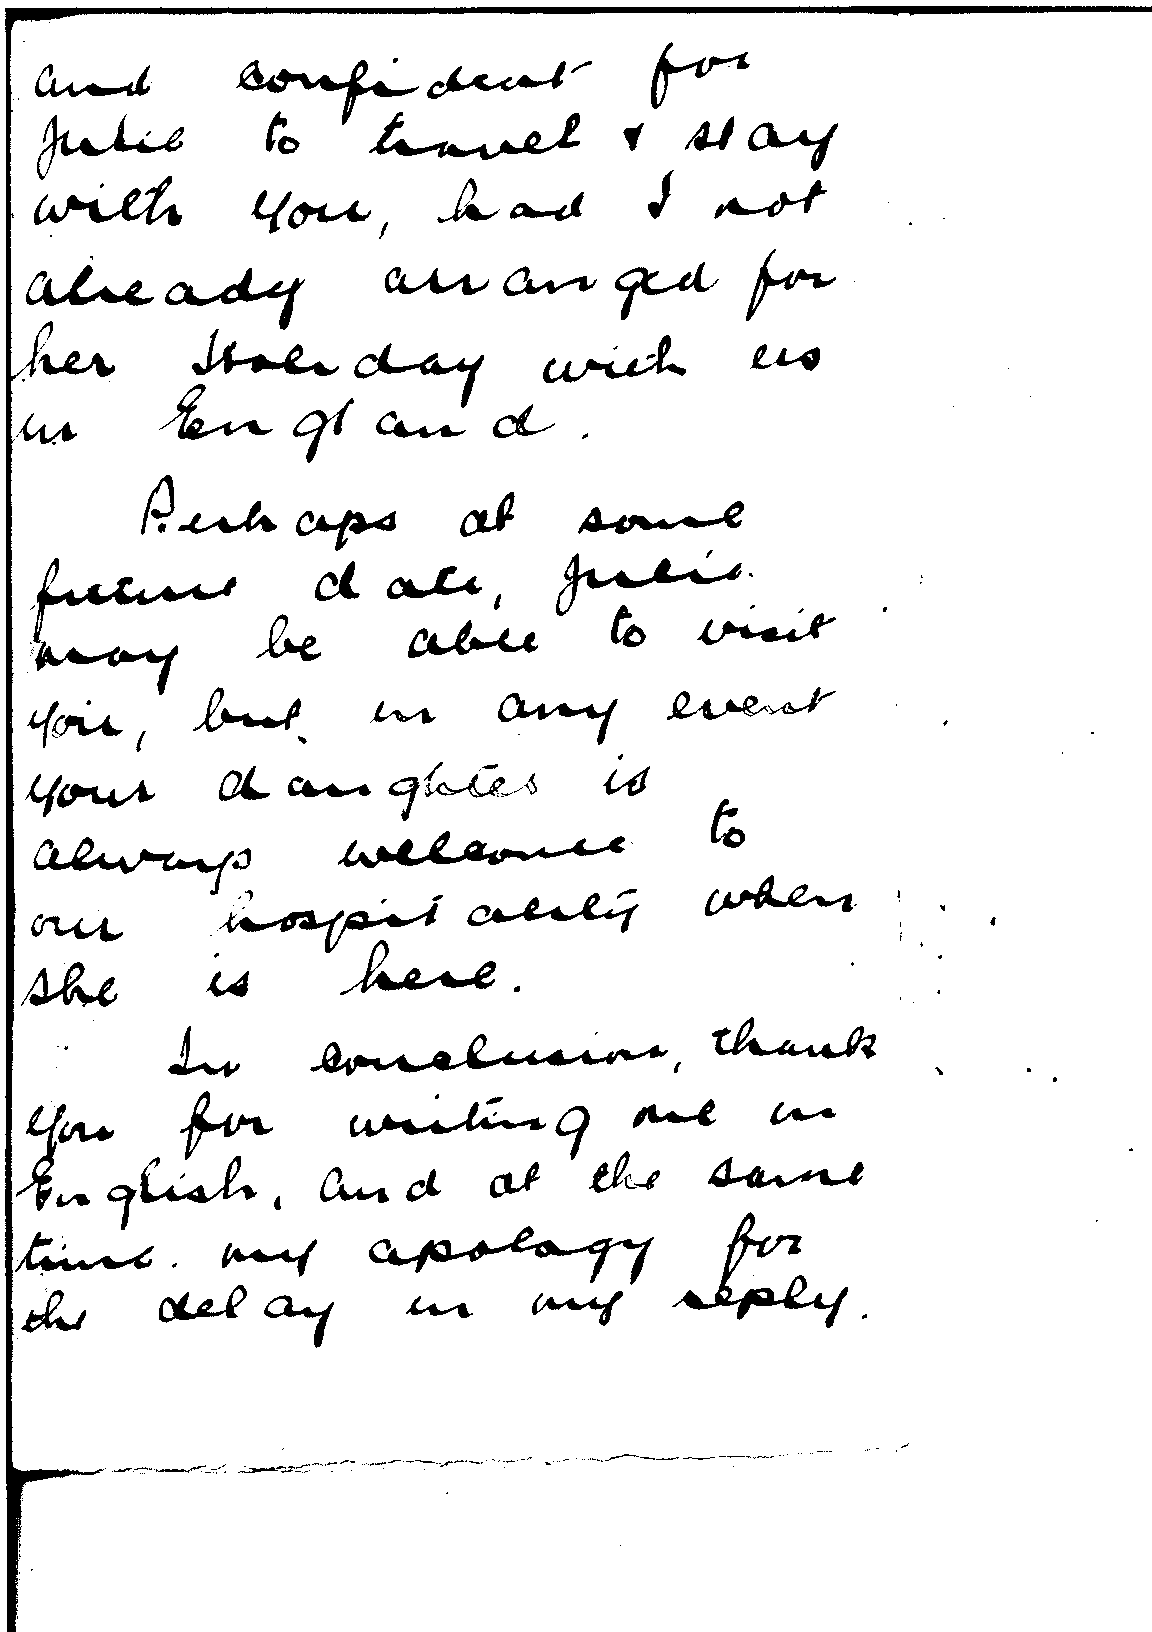 and confident for
Julie to travel & stay
with you, had I not
already arranged for
her Holiday with us
in England.
Perhaps at some
future date, Julie
may be able to visit
you, but in any event
your daughter is
always welcome to
our hospitality when
she is here.
In conclusion, thank
you for writing me in
English, and at the same
time my apology for
the delay in my reply.